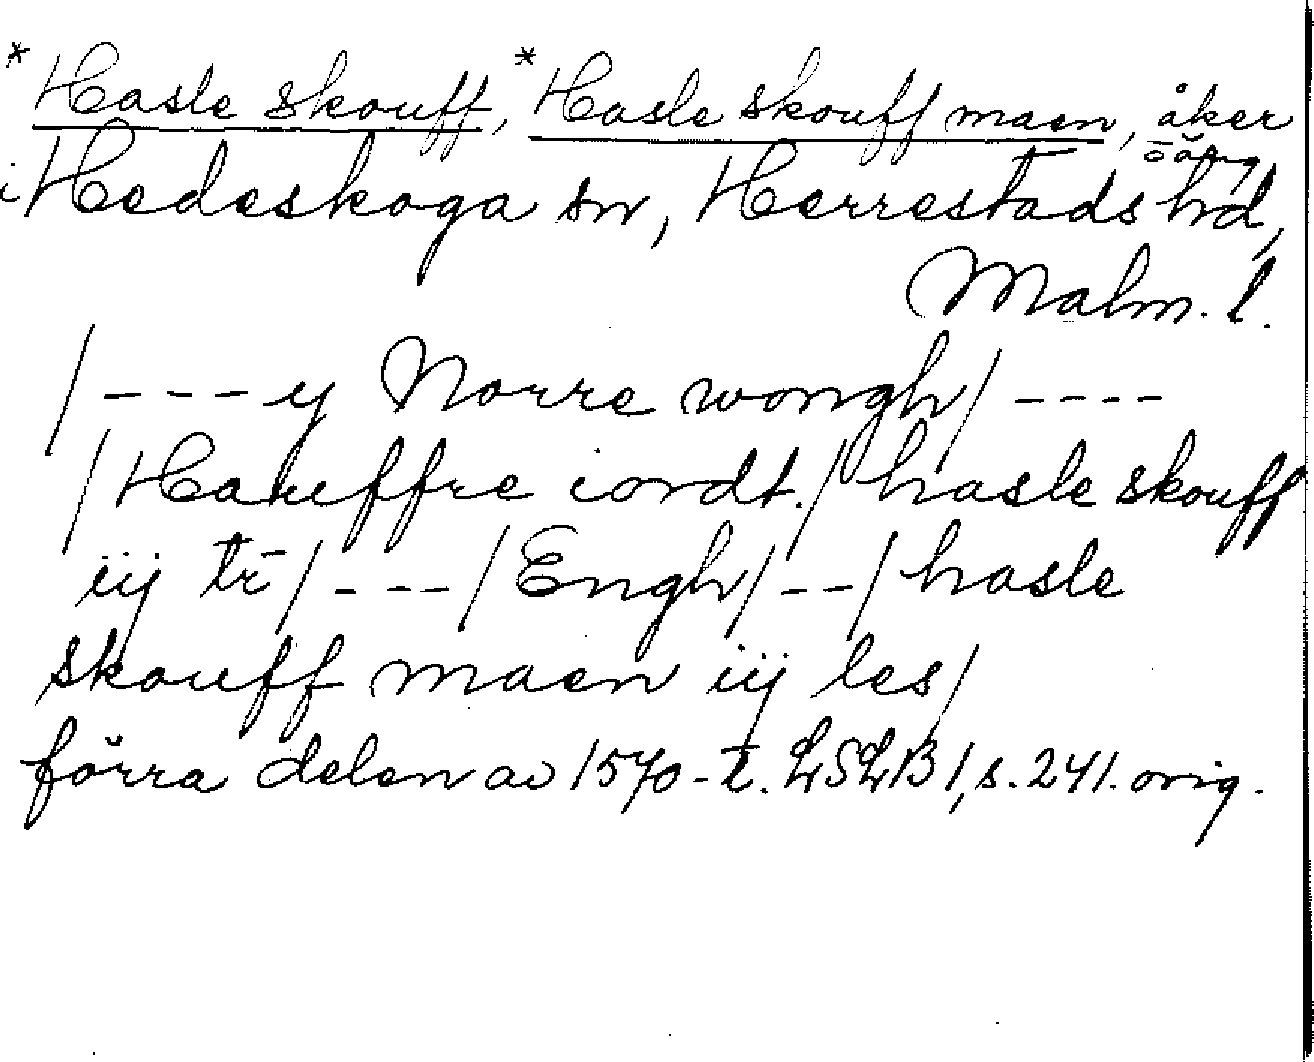 *Hasle skouff, *Hasle skouff maen, åker
o äng
i Hedeskoga sn, Herrestads hd,
Malm. l.
/---y Norre wongh/----
/Hauffre iordt./hasle skouff
iij tr̄/---/Engh/--/hasle
skouff maen iij les/
förra delen av 1570-t. LSLB 1, s. 241. orig.